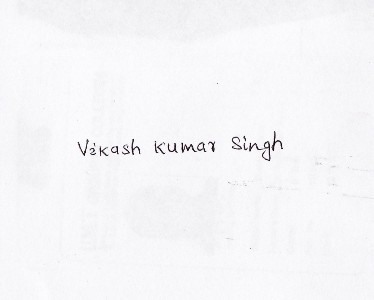 Vikash Kumar Singh